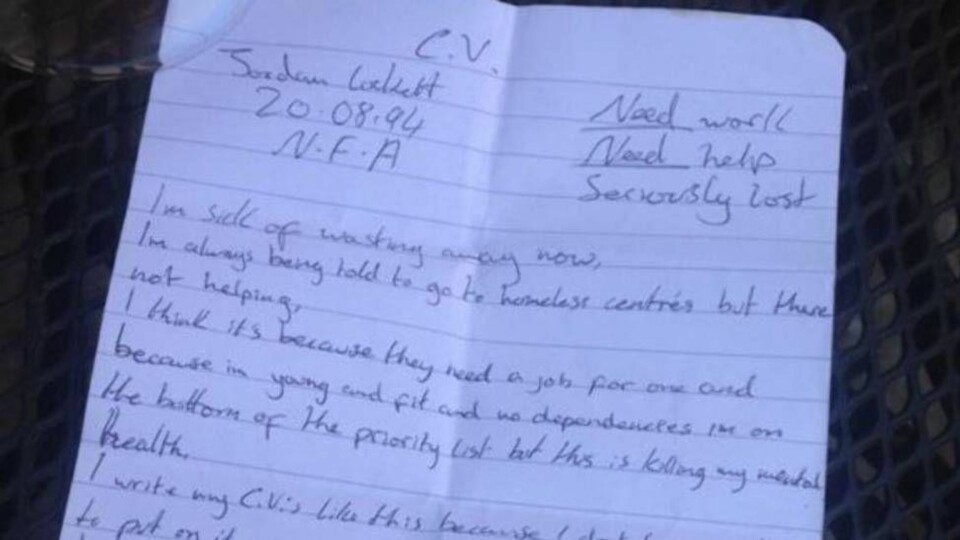 C.V.
Jordan Lockett
20.08.94
N.F.A
Need work
Need help
Seriously lost
Im sick of wasting away now,
Im always being told to go to homeless centres but there
not helping,
I think its because they need a job for one and
because im young and fit and no dependencies im on
the bottom of the priority list but this is killing my mental
health.
I write my C.V.s like this because I
to put on it